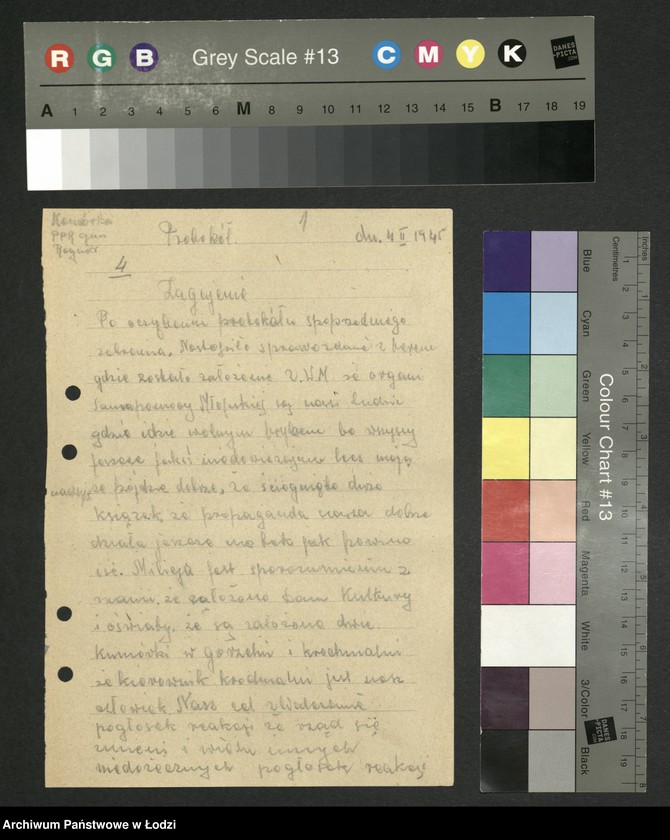 R G B Grey Scale #13 C M Y K DANES-PICTA.COM
A 1 2 3 4 5 6 M 8 9 10 11 12 13 14 15 B 17 18 19
Komórka
PPR gm
Protokół. 1 dn. 4 II 1945
4
Zagajenie
Po
zebrania. sprawozdanie z
gdzie zostało założone Z.W.M. że organ
są nasi ludzie
gdzie idzie wolnym bo wszyscy
jeszcze lecz mają
że pójdzie dobrze, że ściągnięto dużo
książek, że propaganda nasza dobrze
działa jeszcze nie tak jak powinno
iść. Milicja jest z
nami, że założono Dom Kultury
i oświaty, że są założone dwie
komórki w i krochmalni
że kierownik krochmalni jest nasz
człowiek Nasz cel
pogłosek reakcji że rząd się
zmieni i wielu innych
niedorzecznych pogłosek reakcji
Blue
Cyan
Green
Yellow
Red
Magenta
White
3/Color
Black
Colour Chart #13
Centimetres
Inches
1 2 3 4 5 6 7 8 9 10 11 12 13 14 15 16 17 18 19
DANES-PICTA.COM
Archiwum Państwowe w Łodzi